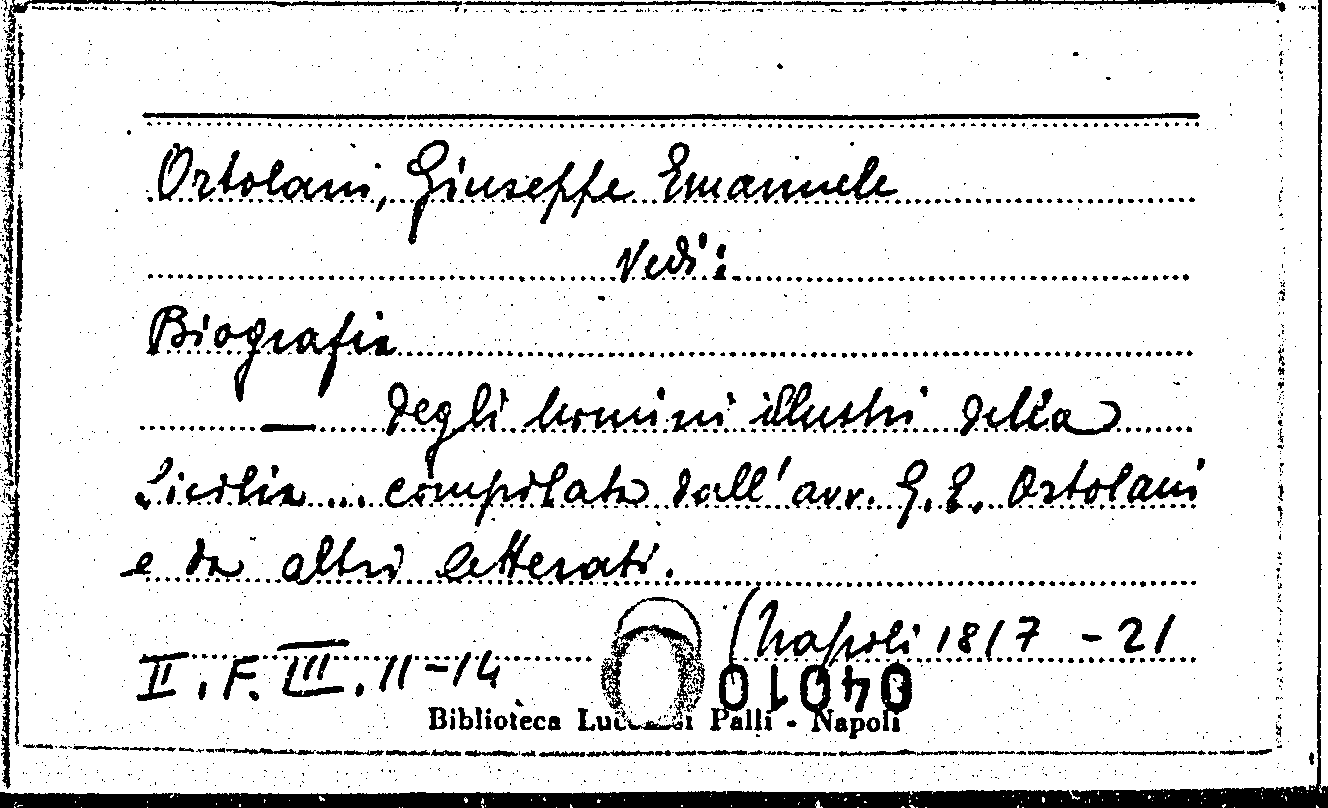 Ortolani, Giuseppe Emanuele
Vedi:
Biografia
— degli uomini illustri della
Sicilia ... compilata dall' avv. G. E. Ortolani
e da altri letterati.
(Napoli 1817 - 21
II. F. III. 11-14
04010
Biblioteca Lucchesi Palli - Napoli